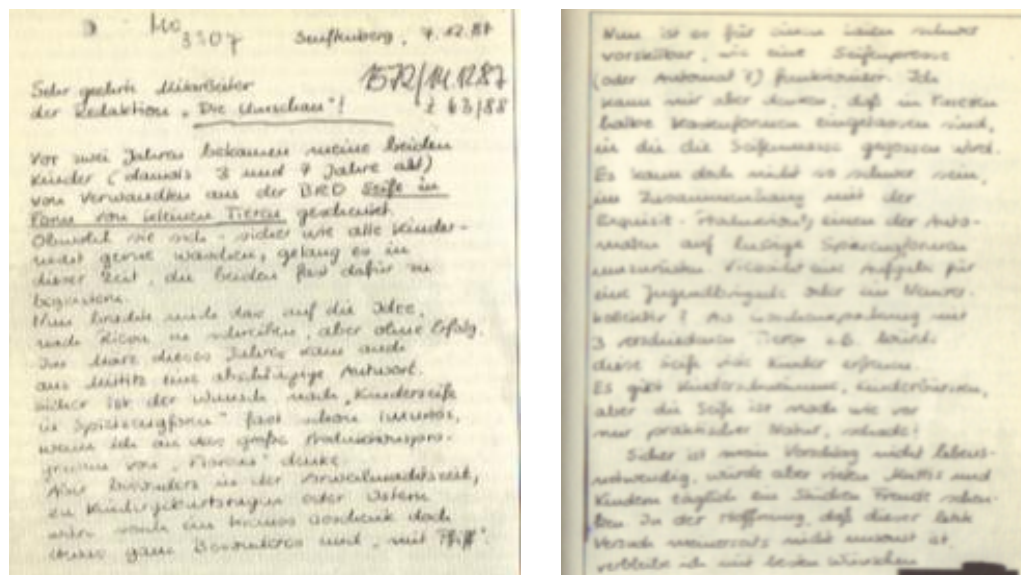 3507
Senftenberg, 7.12.87
572/14.12.87
Sehr geehrte Mitarbeiter
der Redaktion „Die Umschau"!
z 63/88
Vor zwei Jahren bekamen meine beiden
Kinder (damals 3 und 7 Jahre alt)
von Verwandten aus der BRD Seife in
Form von kleinen Tieren geschenkt.
Obwohl sie sich - sicher wie alle Kinder -
nicht gerne waschen, gelang es in
dieser Zeit, die beiden fast dafür zu
begeistern.
Nun brachte mich das auf die Idee,
nach Riesa zu schreiben, aber ohne Erfolg.
Im März dieses Jahres kam auch
aus Miltitz eine abschlägige Antwort.
Sicher ist der Wunsch nach „Kinderseife
in Spielzeugform" fast schon
wenn ich an das große
von „Florena" denke.
Aber besonders in der Vorweihnachtszeit,
zu Kindergeburtstagen oder Ostern
wäre solch ein kleines Geschenk doch
etwas ganz Besonderes und „mit Pfiff".
Nun ist es für einen Laien schwer
vorstellbar, wie eine Seifenpresse
(oder Automat?) funktioniert. Ich
kann mir aber denken, daß in
halbe eingelassen sind,
in die die Seifenmasse gegossen wird.
Es kann doch nicht so schwer sein,
im Zusammenhang mit der
Exquisit- einen der Auto-
maten auf lustige Spielzeugformen
umzurüsten. Vielleicht eine Aufgabe für
eine Jugendbrigade oder ein Neuerer-
kollektiv? Als mit
3 verschiedenen Tieren z.B. würde
diese Seife viele Kinder erfreuen.
Es gibt
aber die Seife ist nach wie vor
nur praktischer Natur, schade!
Sicher ist mein Vorschlag nicht lebens-
notwendig, würde aber vielen Muttis und
Kindern täglich ein bißchen Freude schen-
ken. In der Hoffnung, daß dieser letzte
Versuch meinerseits nicht umsonst ist,
verbleibe ich mit besten Wünschen